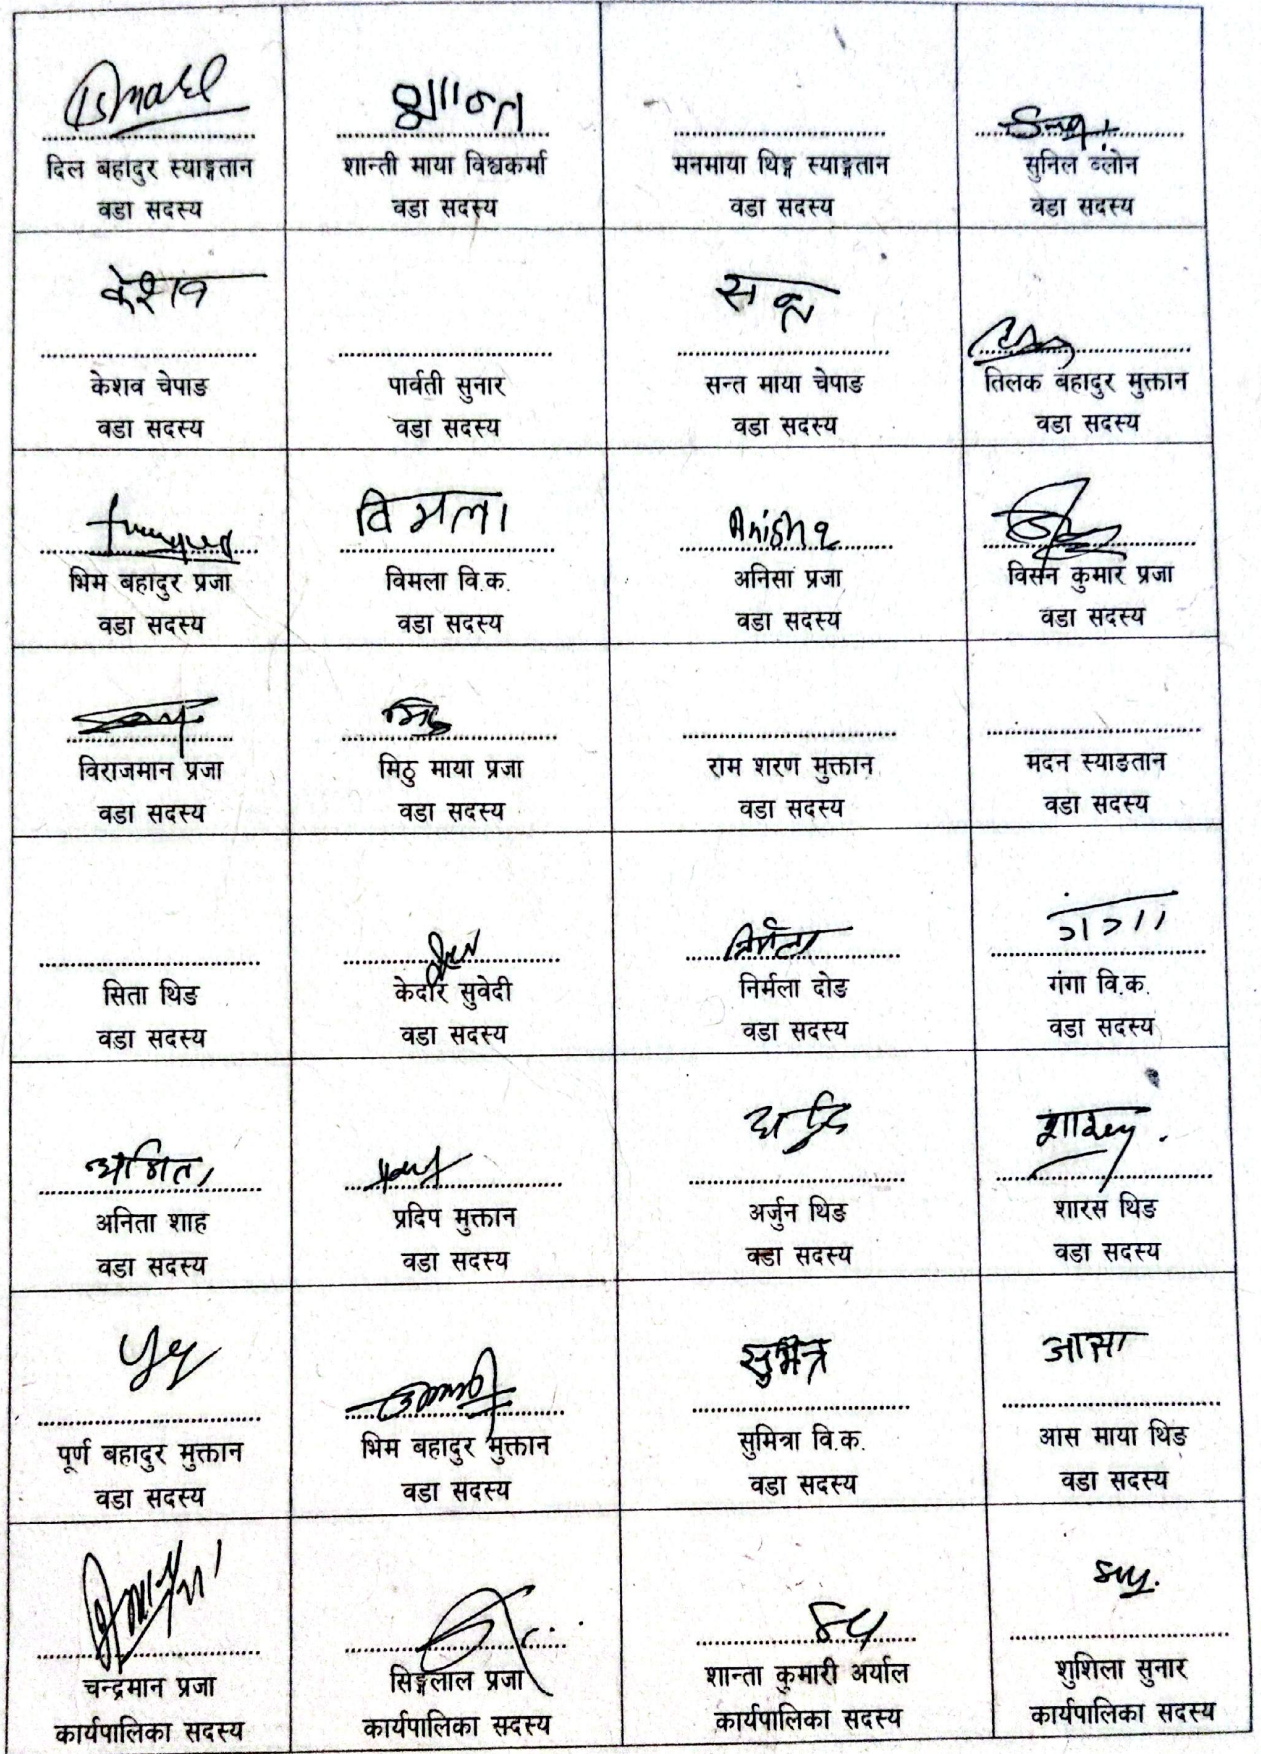 दिल बहादुर स्याङ्गतान
वडा सदस्य
शान्ती माया विश्वकर्मा
वडा सदस्य
मनमाया थिङ्ग स्याङ्गतान
वडा सदस्य
सुनिल ब्लोन
वडा सदस्य
केशव
केशव चेपाङ
वडा सदस्य
पार्वती सुनार
वडा सदस्य
सन्त माया चेपाङ
वडा सदस्य
तिलक बहादुर मुक्तान
वडा सदस्य
भिम बहादुर प्रजा
वडा सदस्य
विमला
विमला वि.क.
वडा सदस्य
Anisha
अनिसा प्रजा
वडा सदस्य
विसन कुमार प्रजा
वडा सदस्य
विराजमान प्रजा
वडा सदस्य
मिठु माया प्रजा
वडा सदस्य
राम शरण मुक्तान
वडा सदस्य
मदन स्याङतान
वडा सदस्य
सिता थिङ
वडा सदस्य
केदार सुवेदी
वडा सदस्य
निर्मला
निर्मला दोङ
वडा सदस्य
गंगा
गंगा वि.क.
वडा सदस्य
अनिता शाह
वडा सदस्य
प्रदिप मुक्तान
वडा सदस्य
अर्जुन थिङ
वडा सदस्य
शारस थिङ
वडा सदस्य
पूर्ण बहादुर मुक्तान
वडा सदस्य
भिम बहादुर मुक्तान
वडा सदस्य
सुमित्रा वि.क.
वडा सदस्य
आसा
आस माया थिङ
वडा सदस्य
चन्द्रमान प्रजा
कार्यपालिका सदस्य
सिङ्गलाल प्रजा
कार्यपालिका सदस्य
शान्ता कुमारी अर्याल
कार्यपालिका सदस्य
शुशिला सुनार
कार्यपालिका सदस्य